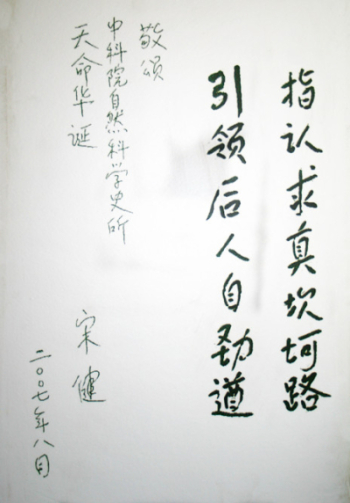 指认求真坎坷路
引领后人自劲道
敬颂
中科院自然科学史所
天命华诞
宋健
二〇〇七年八月